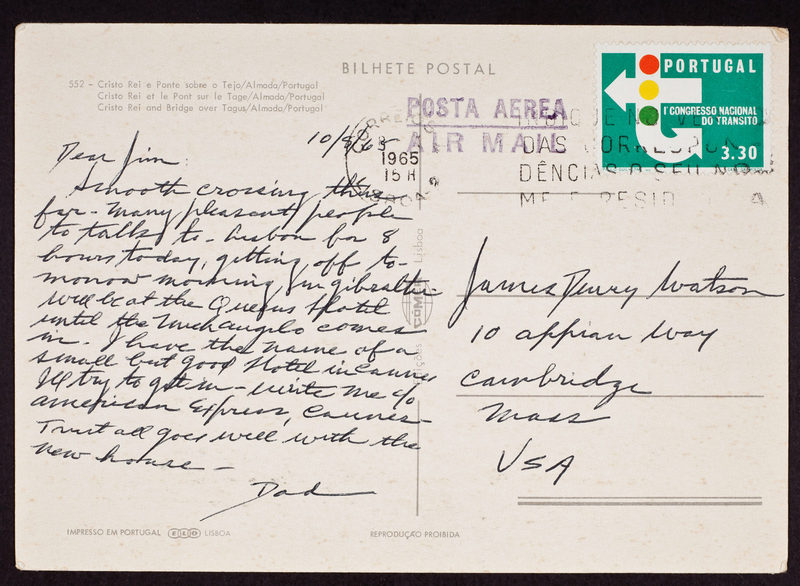 BILHETE POSTAL
552 - Cristo Rei e Ponte sobre o Tejo/Almada/Portugal
Cristo Rei et le Pont sur le Tage/Almada/Portugal
Cristo Rei and Bridge over Tagus/Almada/Portugal
POSTA AEREA
AIR MAIL
1965
15 H
DAS CORRESPON-
DÊNCIAS O SEU NO
ME E RESID A
PORTUGAL
1º CONGRESSO NACIONAL
DO TRANSITO
3.30
10/8/65
Dear Jim:
Smooth crossing thus
far - many pleasant people
to talk to - Lisbon for 8
hours today, getting off to-
morrow morning in Gibraltar
will be at the Queens Hotel
until the Michangelo comes
in. I have the name of a
small but good Hotel in Cannes
I'll try to get in - write me c/o
American Express, Cannes -
Trust all goes well with the
new house -
Dad
James Dewey Watson
10 Appian Way
Cambridge
Mass
USA
Lisboa
COMER
IMPRESSO EM PORTUGAL ELO LISBOA
REPRODUÇÃO PROIBIDA